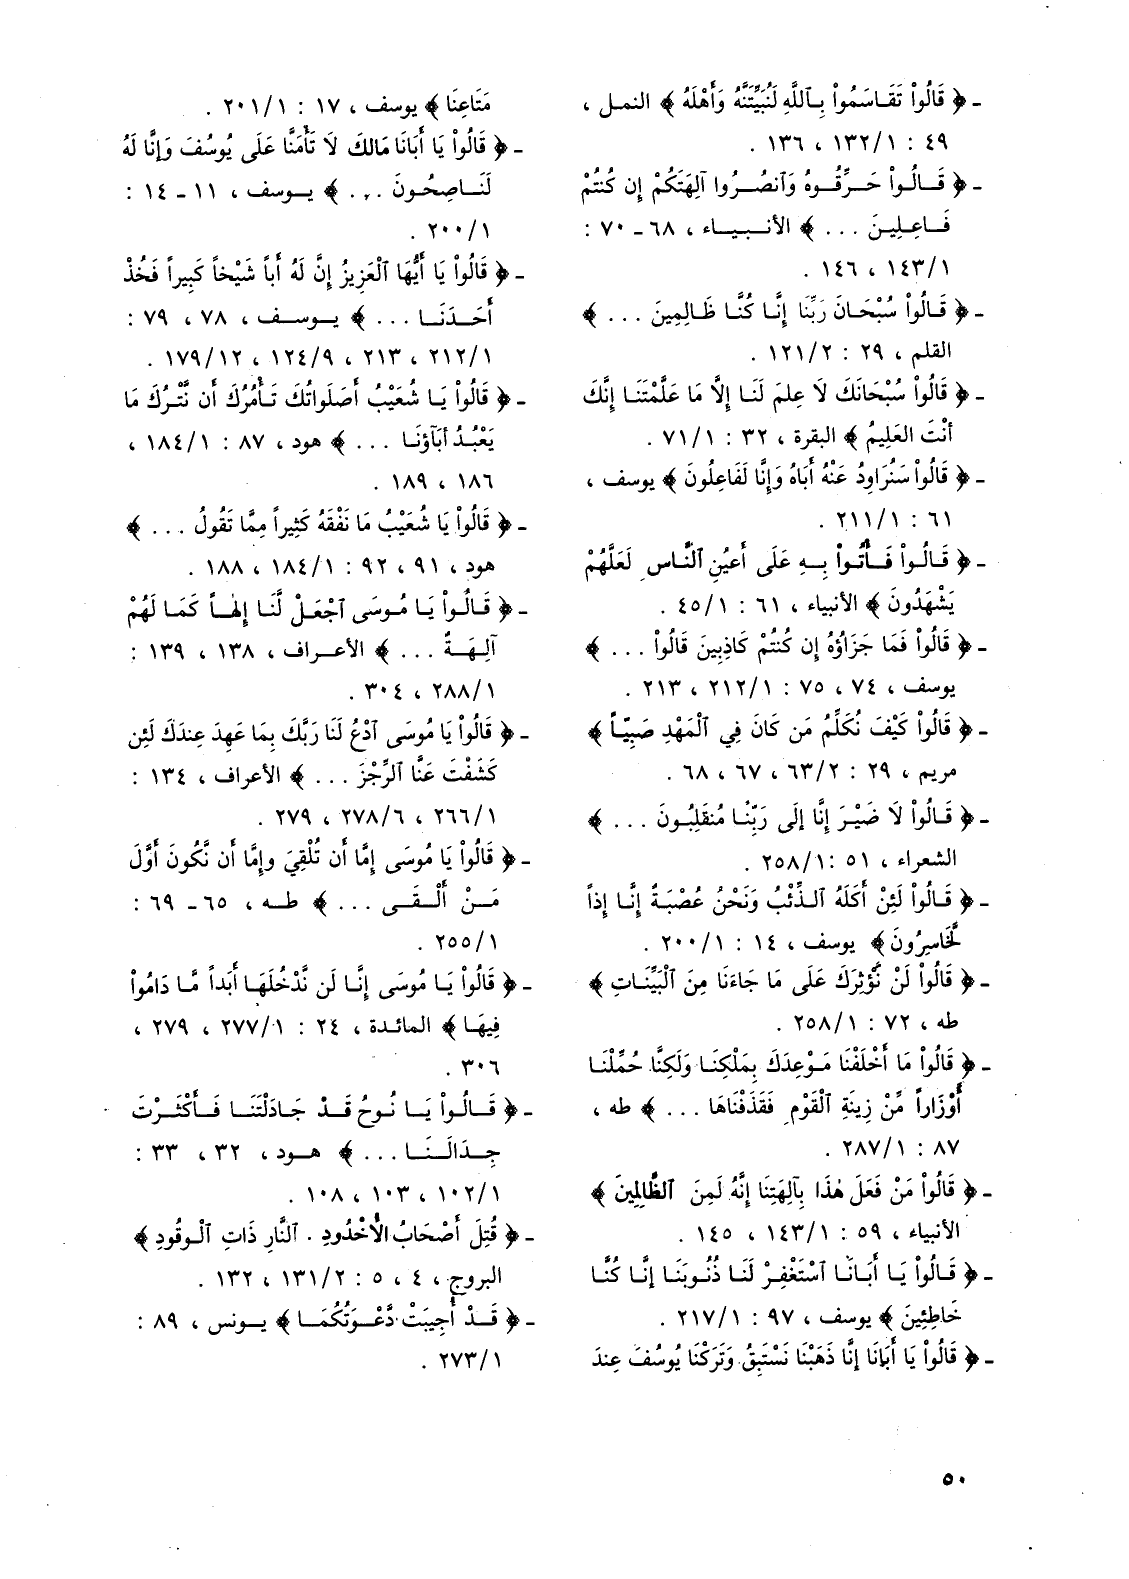 - ﴿ قَالُواْ تَقَاسَمُواْ بِٱللَّهِ لَنُبَيِّتَنَّهُ وَأَهْلَهُ ﴾ النمل ،
٤٩ : ١٣٢/١ ، ١٣٦ .
- ﴿ قَـالُـواْ حَـرِّقُـوهُ وَٱنصُـرُوا آلِهَتَكُمْ إِن كُنتُمْ
فَـاعِلِـينَ ... ﴾ الأنـبـيـاء ، ٦٨ـ ٧٠ :
١٤٣/١ ، ١٤٦ .
- ﴿ قَـالُواْ سُبْحَـانَ رَبِّنَـا إِنَّـا كُنَّـا ظَـالِمِينَ ... ﴾
القلم ، ٢٩ : ١٢١/٢ .
- ﴿ قَالُواْ سُبْحَانَكَ لَا عِلمَ لَنَا إِلَّا مَا عَلَّمْتَنَا إِنَّكَ
أنْتَ العَلِيمُ ﴾ البقرة ، ٣٢ : ٧١/١ .
- ﴿ قَالُواْ سَنُرَاوِدُ عَنْهُ أَبَاهُ وَإِنَّا لَفَاعِلُونَ ﴾ يوسف ،
٦١ : ٢١١/١ .
- ﴿ قَـالُـواْ فَـأْتُـواْ بِـهِ عَلَى أَعيُنِ ٱلنَّاسِ لَعَلَّهُمْ
يَشْهَدُونَ ﴾ الأنبياء ، ٦١ : ٤٥/١ .
- ﴿ قَالُواْ فَمَا جَزَاؤُهُ إِن كُنتُمْ كَاذِبِينَ قَالُواْ ... ﴾
يوسف ، ٧٤ ، ٧٥ : ٢١٢/١ ، ٢١٣ .
- ﴿ قَالُواْ كَيْفَ نُكَلِّمُ مَن كَانَ فِي ٱلْمَهْدِ صَبِيّاً ﴾
مريم ، ٢٩ : ٦٣/٢ ، ٦٧ ، ٦٨ .
- ﴿ قَـالُواْ لَا ضَيْـرَ إِنَّا إِلَى رَبِّنَـا مُنقَلِبُـونَ ... ﴾
الشعراء ، ٥١ : ٢٥٨/١ .
- ﴿ قَـالُواْ لَئِنْ أَكَلَهُ ٱلـذِّئْبُ وَنَحْنُ عُصْبَـةٌ إِنَّـا إِذاً
لَخَاسِرُونَ ﴾ يوسف ، ١٤ : ٢٠٠/١ .
- ﴿ قَالُواْ لَنْ نُّؤْثِرَكَ عَلَى مَا جَاءَنَا مِنَ ٱلْبَيِّنَاتِ ﴾
طه ، ٧٢ : ٢٥٨/١ .
- ﴿ قَالُواْ مَا أَخْلَفْنَا مَـوْعِدَكَ بِمَلْكِنَـا وَلَكِنَّا حُمِّلْنَـا
أَوْزَاراً مِّنْ زِينَةِ ٱلْقَوْمِ فَقَذَفْنَاهَا ... ﴾ طه ،
٨٧ : ٢٨٧/١ .
- ﴿ قَالُواْ مَنْ فَعَلَ هَٰذَا بِآلِهَتِنَا إِنَّهُ لَمِنَ ٱلظَّالِمِينَ ﴾
الأنبياء ، ٥٩ : ١٤٣/١ ، ١٤٥ .
- ﴿ قَالُواْ يَـا أَبَانَا ٱسْتَغْفِـرْ لَنَا ذُنُـوبَنَا إِنَّـا كُنَّـا
خَاطِئِينَ ﴾ يوسف ، ٩٧ : ٢١٧/١ .
- ﴿ قَالُواْ يَا أَبَانَا إِنَّا ذَهَبْنَا نَسْتَبِقُ وَتَرَكْنَا يُوسُفَ عِندَ
مَتَاعِنَا ﴾ يوسف ، ١٧ : ٢٠١/١ .
- ﴿ قَالُواْ يَا أَبَانَا مَالَكَ لَا تَأْمَنَّا عَلَى يُوسُفَ وَإِنَّا لَهُ
لَنَـاصِحُـونَ ... ﴾ يـوسف ، ١١ـ ١٤ :
٢٠٠/١ .
- ﴿ قَالُواْ يَا أَيُّهَا ٱلْعَزِيزُ إِنَّ لَهُ أَباً شَيْخاً كَبِيراً فَخُذْ
أَحَـدَنَـا ... ﴾ يـوسـف ، ٧٨ ، ٧٩ :
٢١٢/١ ، ٢١٣ ، ١٢٤/٩ ، ١٧٩/١٢ .
- ﴿ قَالُواْ يَـا شُعَيْبُ أَصَلَواتُكَ تَـأْمُرُكَ أَن نَّتْـرُكَ مَا
يَعْبُـدُ أبَآؤنَـا ... ﴾ هود ، ٨٧ : ١٨٤/١ ،
١٨٦ ، ١٨٩ .
- ﴿ قَالُواْ يَا شُعَيْبُ مَا نَفْقَهُ كَثِيراً مِمَّا تَقُولُ ... ﴾
هود ، ٩١ ، ٩٢ : ١٨٤/١ ، ١٨٨ .
- ﴿ قَـالُـواْ يَـا مُـوسَى ٱجْعَـلْ لَّنَـا إِلٰهـاً كَمَـا لَهُمْ
آلِـهَـةٌ ... ﴾ الأعـراف ، ١٣٨ ، ١٣٩ :
٢٨٨/١ ، ٣٠٤ .
- ﴿ قَالُواْ يَا مُوسَى ٱدْعُ لَنَا رَبَّكَ بِمَا عَهِدَ عِندَكَ لَئِن
كَشَفْتَ عَنَّا ٱلرِّجْزَ ... ﴾ الأعراف ، ١٣٤ :
٢٦٦/١ ، ٢٧٨/٦ ، ٢٧٩ .
- ﴿ قَالُواْ يَا مُوسَى إِمَّا أَن تُلْقِيَ وإِمَّا أَن نَّكُونَ أَوَّلَ
مَـنْ أَلْـقَـى ... ﴾ طـه ، ٦٥ـ ٦٩ :
٢٥٥/١ .
- ﴿ قَالُواْ يَـا مُوسَى إِنَّـا لَن نَّدْخُلَهَـا أَبَداً مَّـا دَامُواْ
فِيهَـا ﴾ المائـدة ، ٢٤ : ٢٧٧/١ ، ٢٧٩ ،
٣٠٦ .
- ﴿ قَـالُـواْ يَـا نُـوحُ قَـدْ جَـادَلْتَنَـا فَـأَكْثَـرْتَ
جِـدَالَـنَـا ... ﴾ هـود ، ٣٢ ، ٣٣ :
١٠٢/١ ، ١٠٣ ، ١٠٨ .
- ﴿ قُتِلَ أَصْحَابُ الأُخْدُودِ . ٱلنَّارِ ذَاتِ ٱلْوقُودِ ﴾
البروج ، ٤ ، ٥ : ١٣١/٢ ، ١٣٢ .
- ﴿ قَـدْ أُجِيبَتْ دَّعْـوَتُكُمَـا ﴾ يـونس ، ٨٩ :
٢٧٣/١ .
٥٠